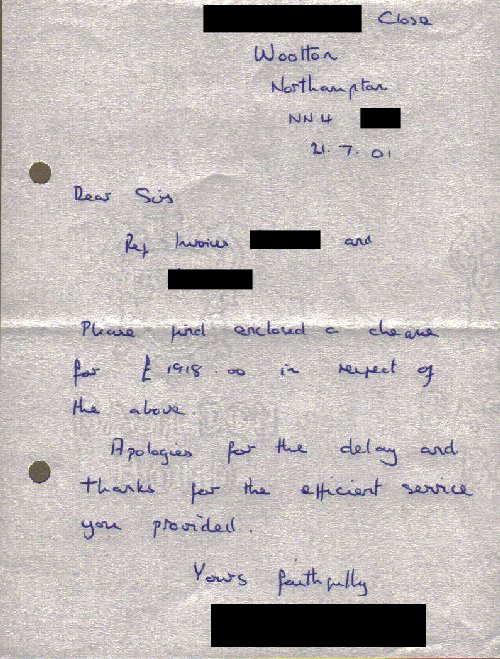 Close
Wootton
Northampton
NN4
21.7.01
Dear Sirs
Ref Invoices and
Please find enclosed a cheque
for £1918.00 in respect of
the above.
Apologies for the delay and
thanks for the efficient service
you provided.
Yours faithfully